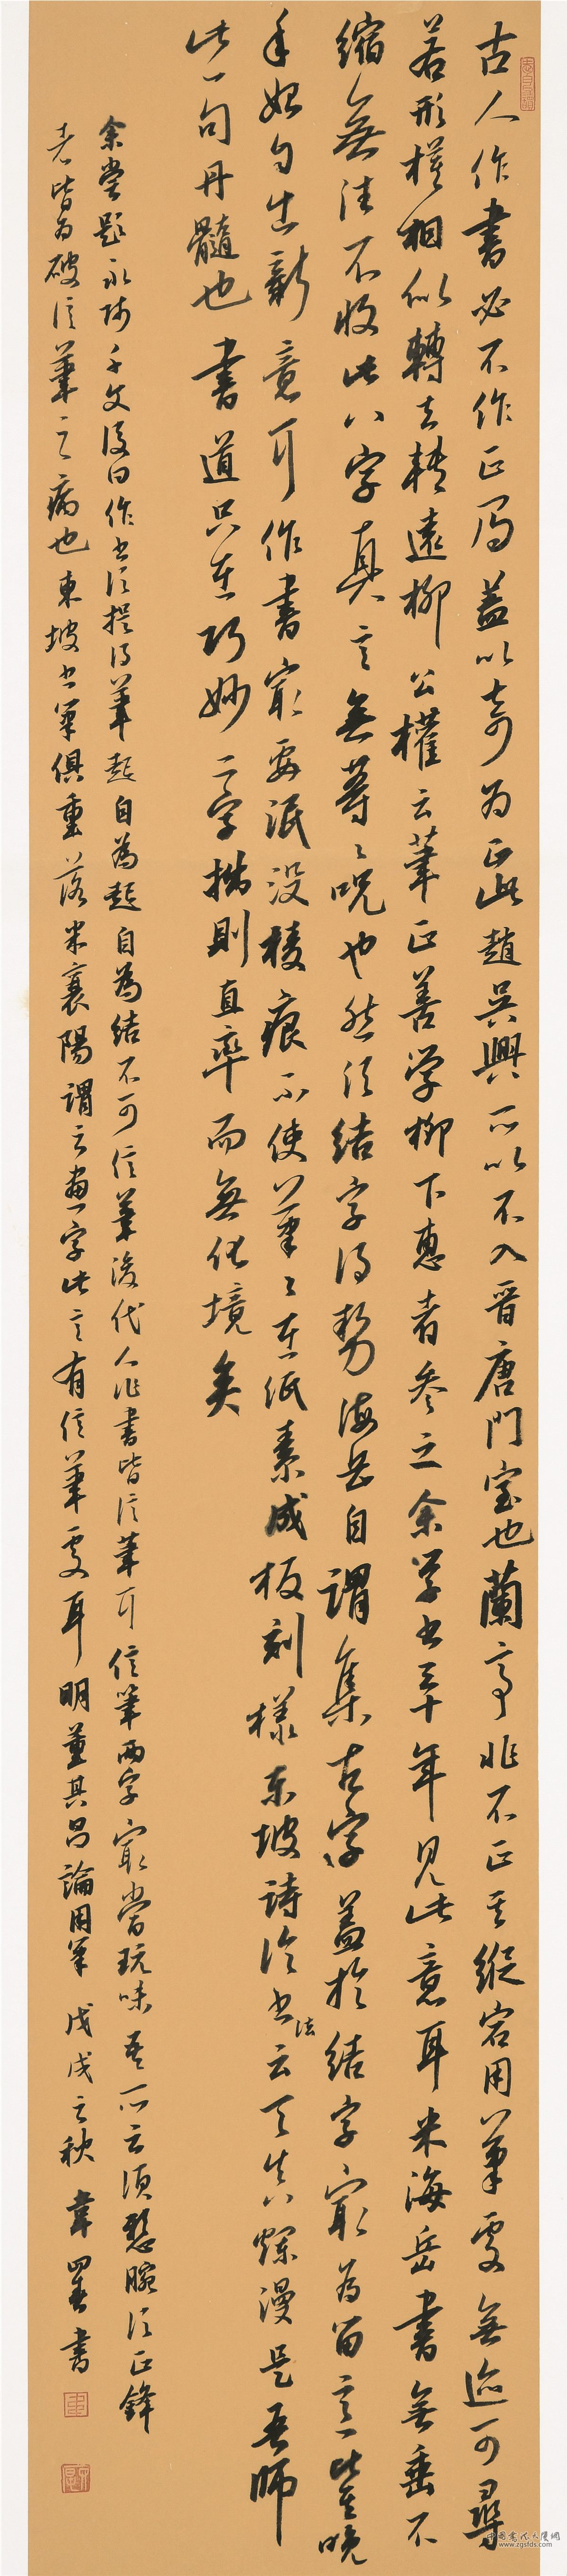 古人作書必不作正局蓋以奇為正此趙吳興所以不入晉唐門室也蘭亭非不正其縱宕用筆處無迹可尋
若形模相似轉去轉遠柳公權云筆正善學柳下惠者參之余學書三十年見此意耳米海岳書無垂不
縮無往不收此八字真言無等等呪也然須結字得勢海岳自謂集古字蓋於結字最為留意此其晚
年始自出新意耳作書最要泯沒棱痕不使筆筆在紙素成板刻樣東坡詩論書法云天真爛漫是吾師
此一句丹髓也書道只在巧妙二字拙則直率而無化境矣
余嘗題永師千文後曰作書須提得筆起自為起自為結不可信筆後代人作書皆信筆耳信筆兩字最當玩味吾所云須懸腕須正鋒
者皆為破信筆之病也東坡書筆俱重落米襄陽謂之畫字此言有信筆處耳明董其昌論用筆戊戌之秋韋署書
中国书法大厦网
www.zgsfds.com